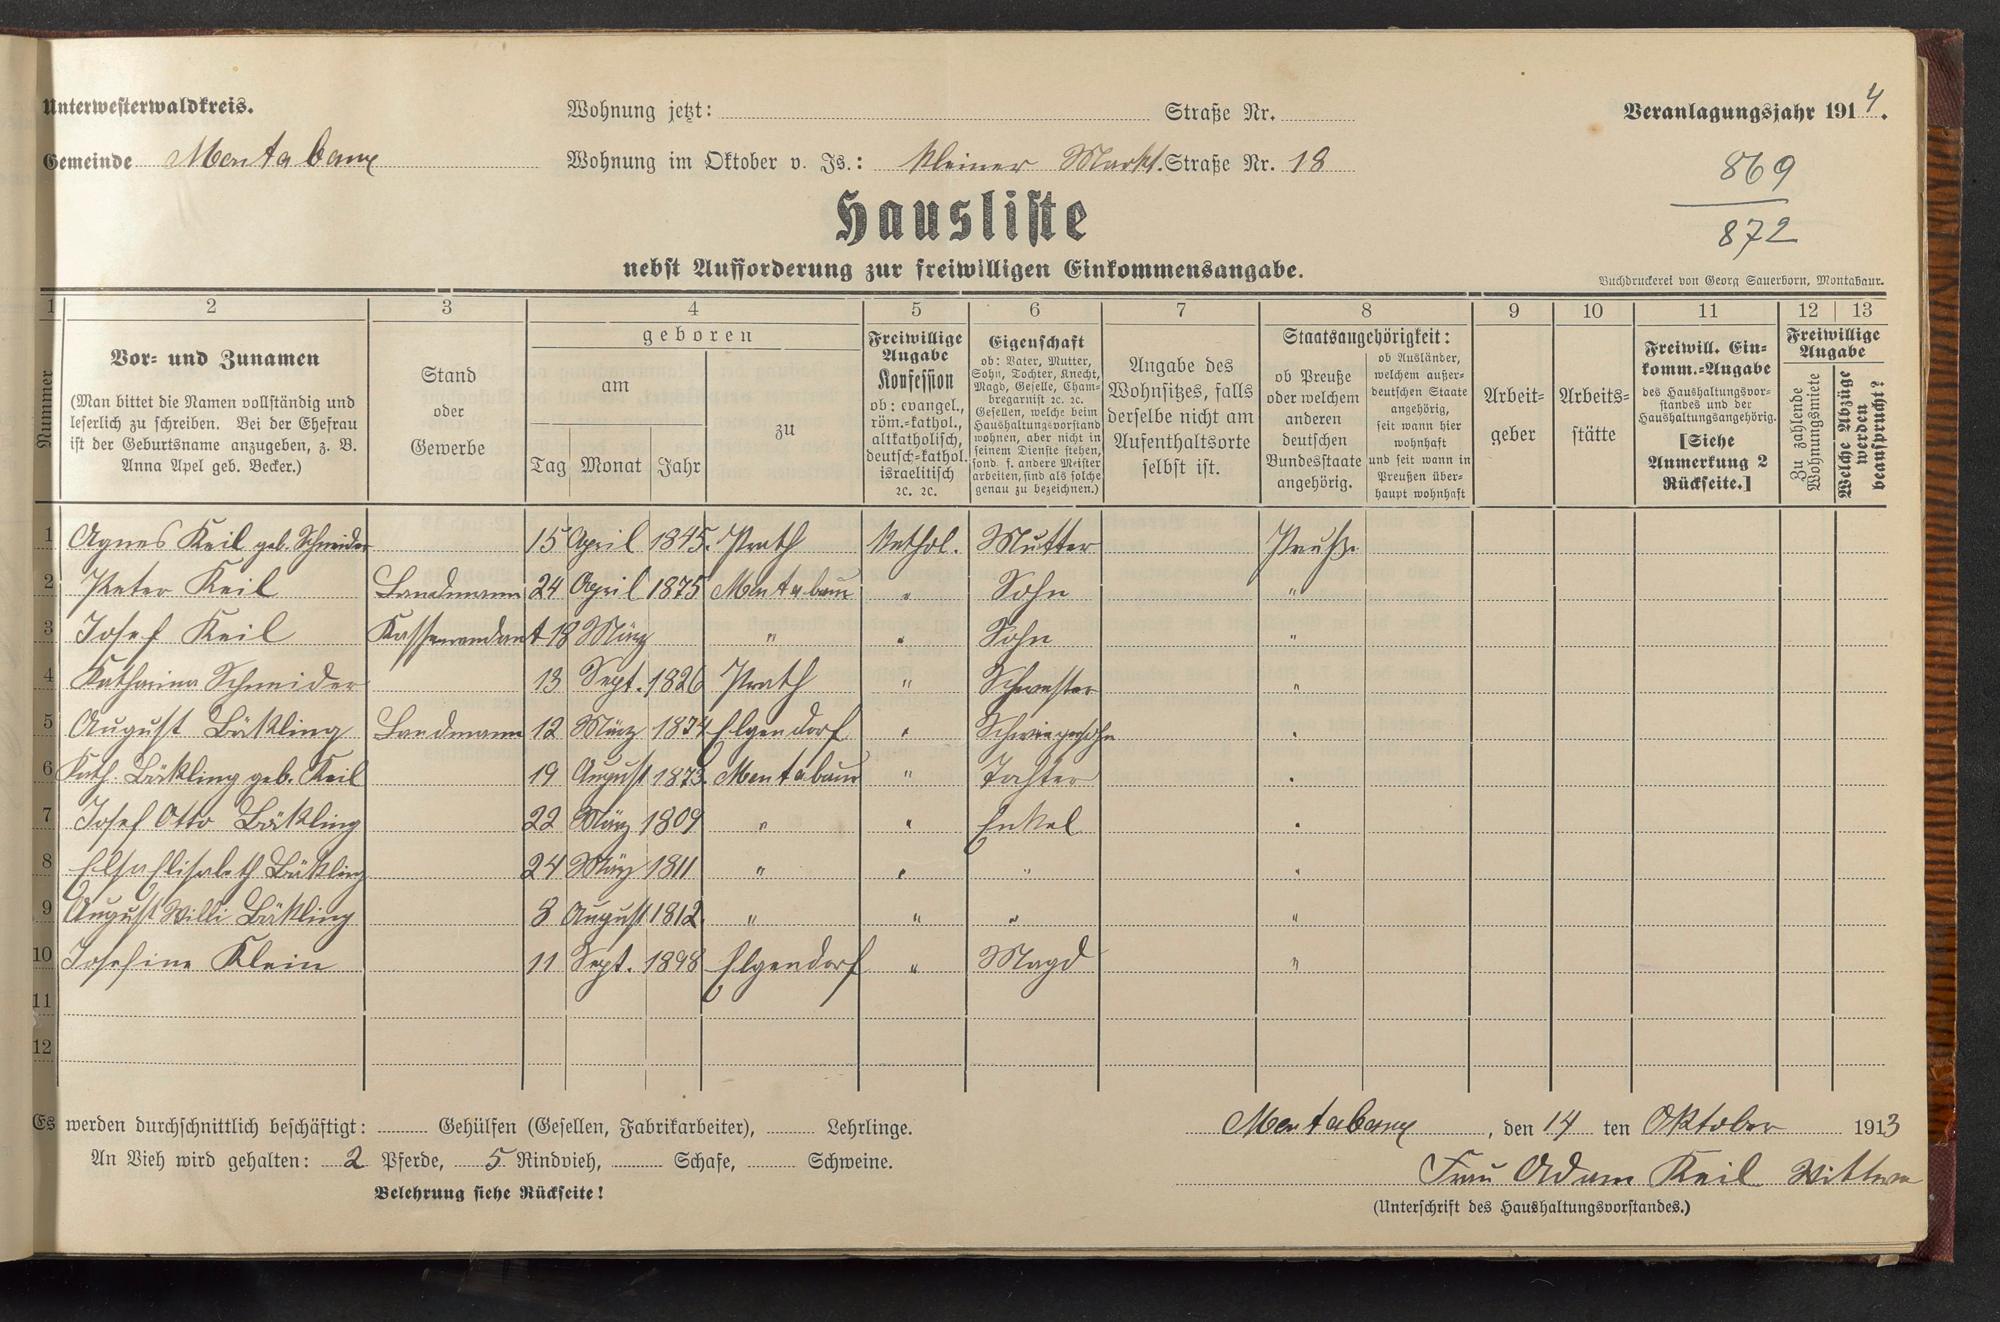 Unterwesterwaldkreis.
Wohnung jetzt: Straße Nr.
Veranlagungsjahr 1914.
Gemeinde Montabaur
Wohnung im Oktober v. Js.: Kleiner Markt. Straße Nr. 18
869
872
Hausliste
nebst Aufforderung zur freiwilligen Einkommensangabe.
Buchdruckerei von Georg Sauerborn, Montabaur.
1 2 3 4 5 6 7 8 9 10 11 12 13
Nummer
Vor- und Zunamen
(Man bittet die Namen vollständig und
leserlich zu schreiben. Bei der Ehefrau
ist der Geburtsname anzugeben, z. B.
Anna Apel geb. Becker.)
Stand
oder
Gewerbe
geboren
am
Tag Monat Jahr
zu
Freiwillige
Angabe
Konfession
ob: evangel.,
röm.-kathol.,
altkatholisch,
deutsch-kathol.
israelitisch
2c. 2c.
Eigenschaft
ob: Vater, Mutter,
Sohn, Tochter, Knecht,
Magd, Geselle, Cham-
bregarnist 2c. 2c.
Gesellen, welche beim
Haushaltungsvorstand
wohnen, aber nicht in
seinem Dienste stehen,
sond. f. andere Meister
arbeiten, sind als solche
genau zu bezeichnen.)
Angabe des
Wohnsitzes, falls
derselbe nicht am
Aufenthaltsorte
selbst ist.
Staatsangehörigkeit:
ob Preuße
oder welchem
anderen
deutschen
Bundesstaate
angehörig.
ob Ausländer,
welchem außer-
deutschen Staate
angehörig,
seit wann hier
wohnhaft
und seit wann in
Preußen über-
haupt wohnhaft
Arbeit-
geber
Arbeits-
stätte
Freiwill. Ein-
komm.-Angabe
des Haushaltungsvor-
standes und der
Haushaltungsangehörig.
[Siehe
Anmerkung 2
Rückseite.]
Freiwillige
Angabe
Zu zahlende
Wohnungsmiete
Welche Abzüge
werden
beansprucht?
1 Agnes Keil geb. Schneider 15 April 1845. Prath Kathol. Mutter Preuße
2 Peter Keil Landmann 24 April 1875 Montabaur " Sohn "
3 Josef Keil Kassenrendant 18 März " " Sohn "
4 Katharina Schneider 13 Sept. 1826 Prath " Schwester "
5 August Bäckling Landmann 12 März 1874 Elgendorf " Schwiegersohn "
6 Kath. Bäckling geb. Keil 19 August 1873. Montabaur " Tochter "
7 Josef Otto Bäckling 22 März 1809 " " Enkel "
8 Elsa Elisabeth Bäckling 24 März 1811 " " " "
9 August Willi Bäckling 3 August 1812. " " " "
10 Josefine Klein 11 Sept. 1898 Elgendorf " Magd "
11
12
Es werden durchschnittlich beschäftigt: Gehülfen (Gesellen, Fabrikarbeiter), Lehrlinge.
An Vieh wird gehalten: 2 Pferde, 5 Rindvieh, Schafe, Schweine.
Belehrung siehe Rückseite!
Montabaur, den 14 ten Oktober 1913
Frau Adam Keil Wittwe
(Unterschrift des Haushaltungsvorstandes.)